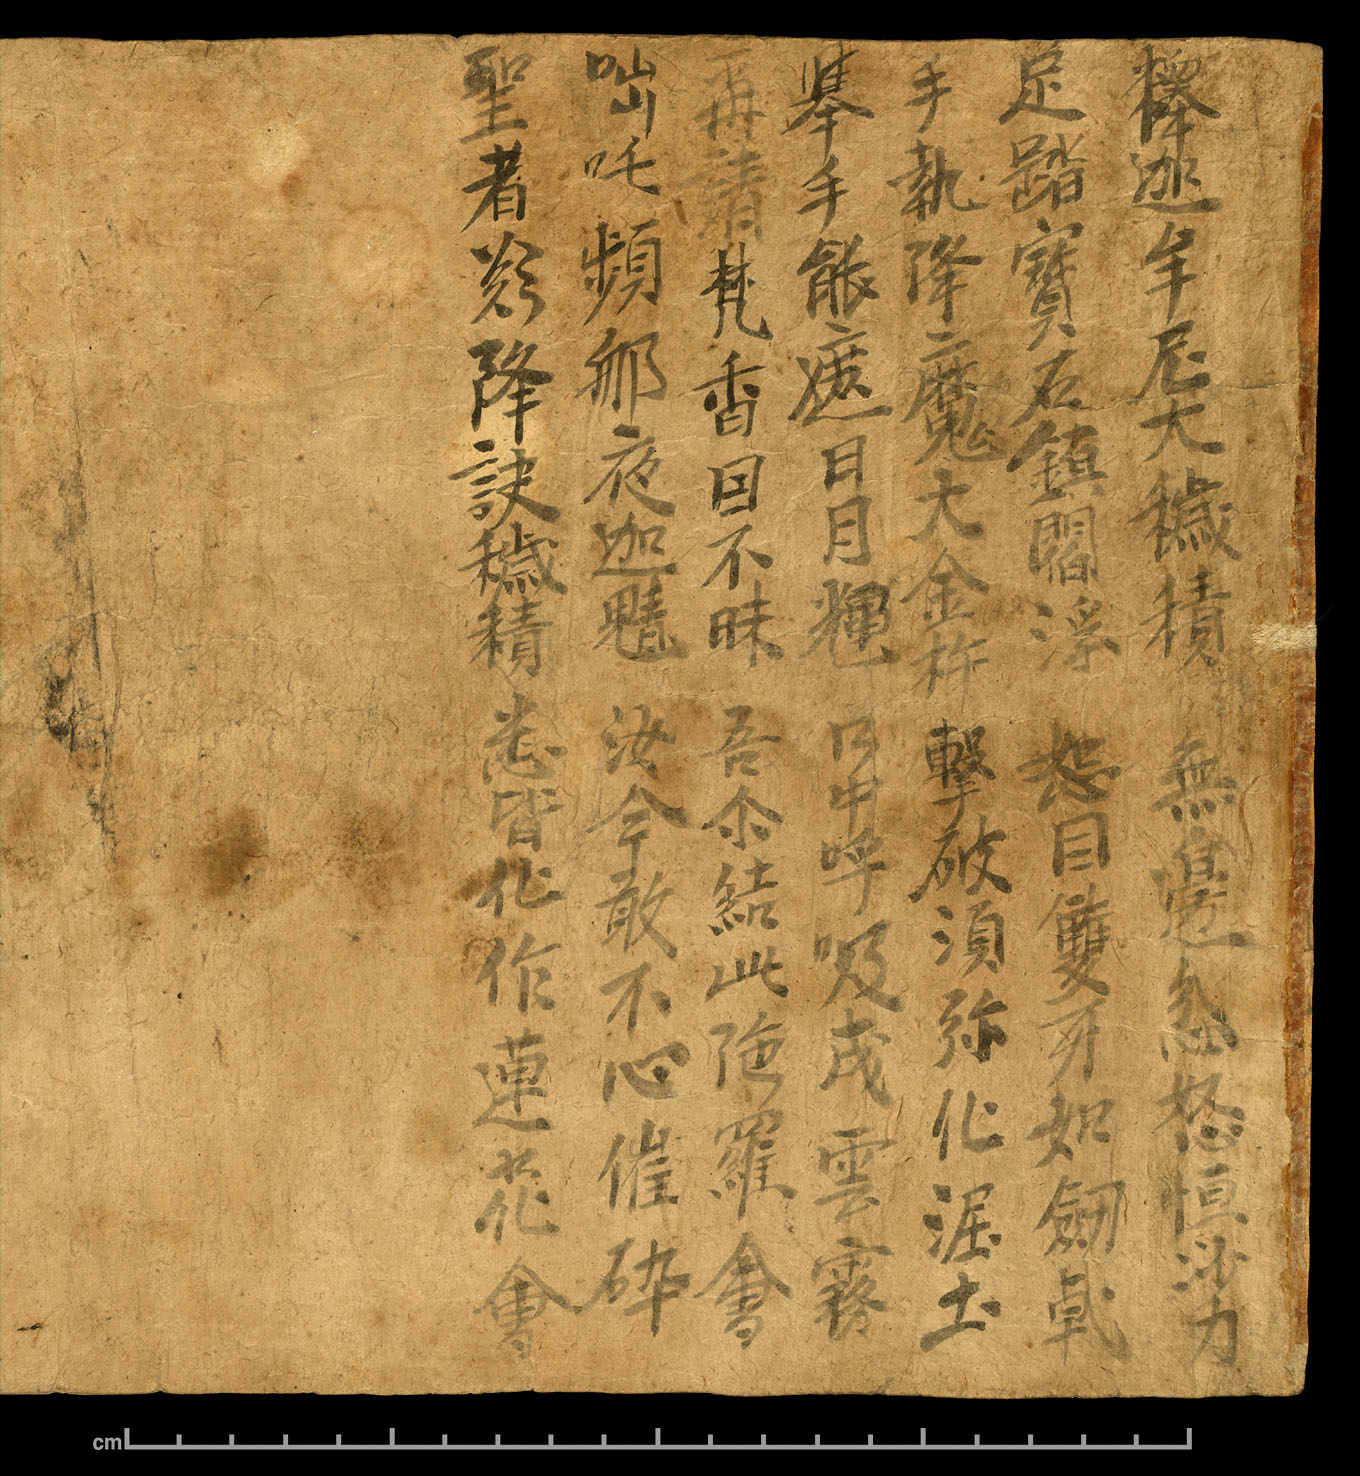 釋迦牟尼大穢積 無邊忿怒恒沙力
足踏寶石鎮閻浮 怒目雙牙如劒戟
手執降魔大金杵 擊破須弥化渥土
舉手能遮日月輝 口中呼吸成雲霧
再請梵香因不昧 吾尒結此陁羅會
咄吒頻那夜迦魋 汝今敢不心催碎
聖者發降訣穢積 悉皆化作蓮花會